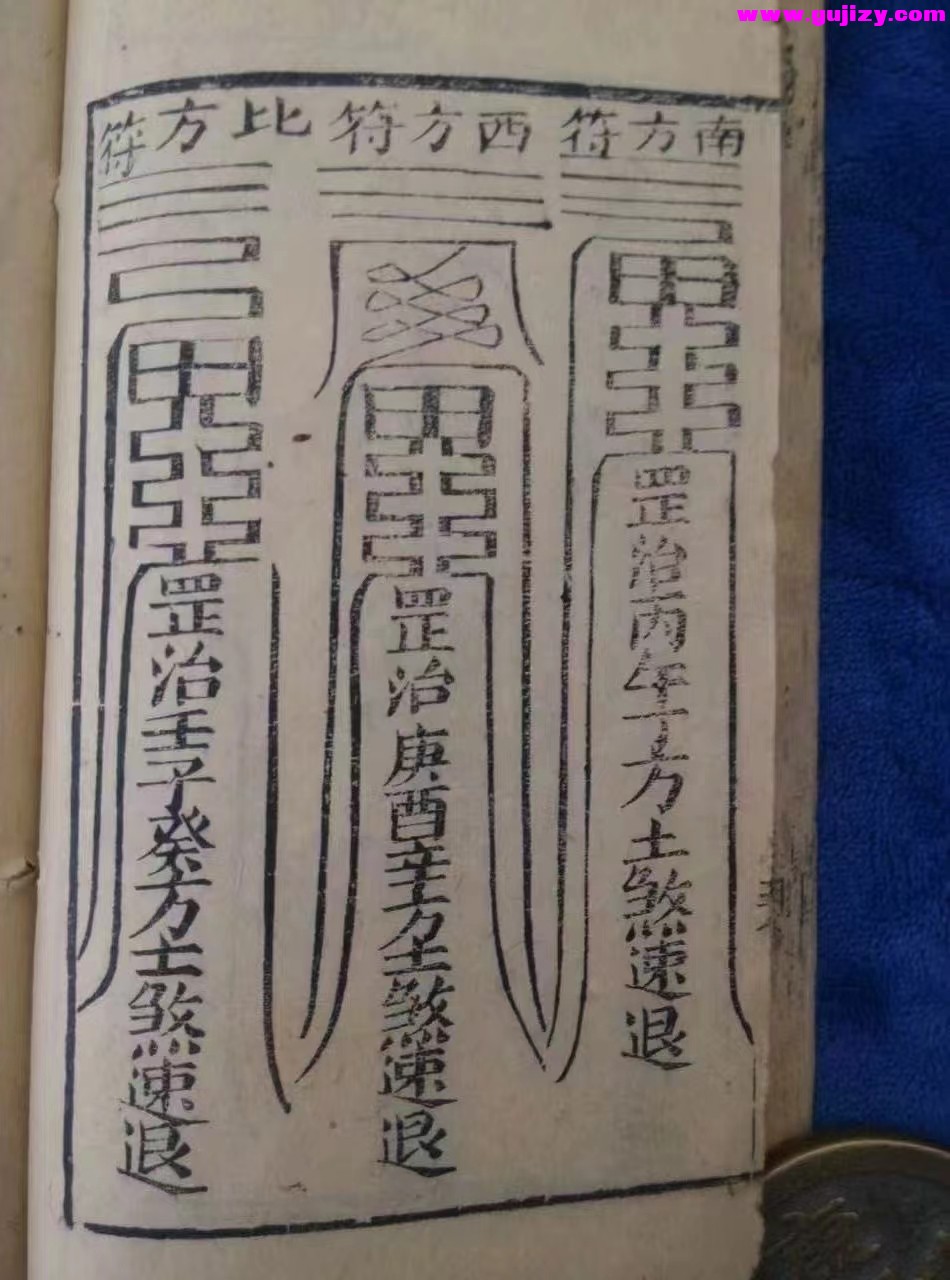 www.gujizy.com
南方符
罡治丙午丁方土煞速退
西方符
罡治庚酉辛方土煞速退
北方符
罡治壬子癸方土煞速退